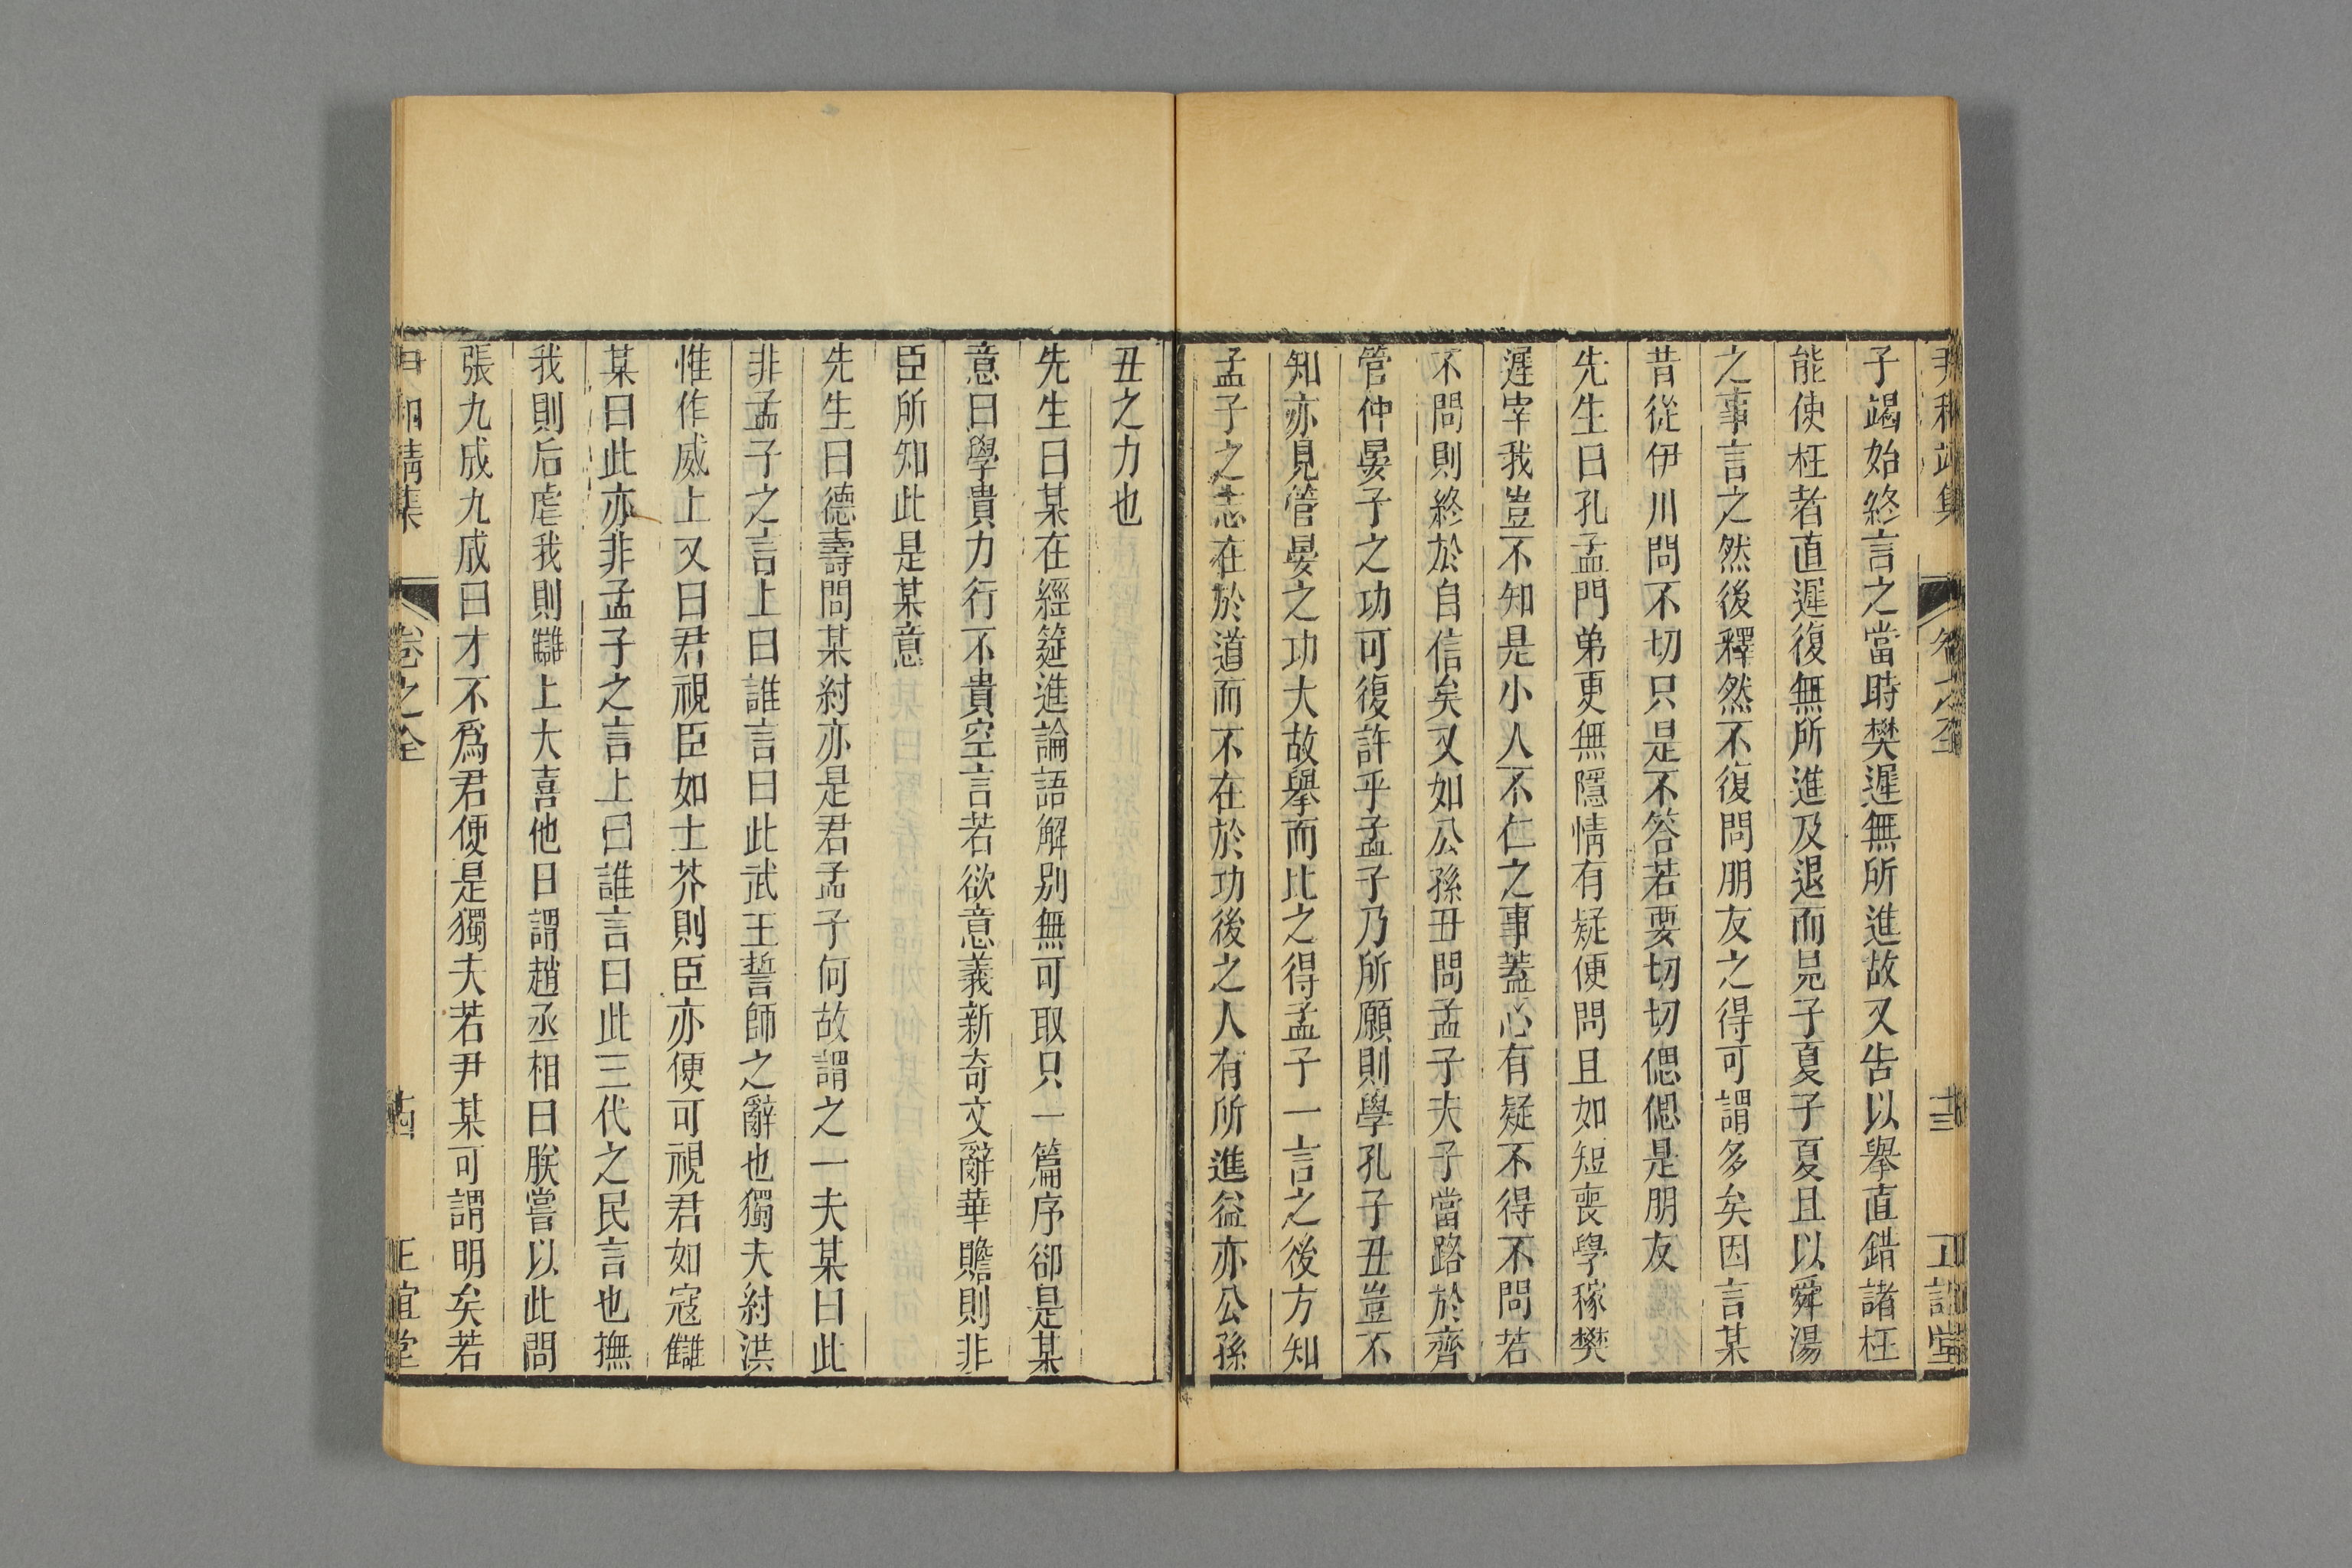 尹和靖集 卷之全 十三 正誼堂
子竭始終言之當時樊遲無所進故又告以舉直錯諸枉
能使枉者直遲復無所進及退而見子夏子夏且以舜湯
之事言之然後釋然不復問朋友之得可謂多矣因言某
昔從伊川問不切只是不答若要切切偲偲是朋友
先生曰孔孟門弟更無隱情有疑便問且如短喪學稼樊
遲宰我豈不知是小人不仁之事蓋心有疑不得不問若
不問則終於自信矣又如公孫丑問孟子夫子當路於齊
管仲晏子之功可復許乎孟子乃所願則學孔子丑豈不
知亦見管晏之功大故舉而比之得孟子一言之後方知
孟子之志在於道而不在於功後之人有所進益亦公孫
丑之力也
先生曰某在經筵進論語解別無可取只一篇序卻是某
意曰學貴力行不貴空言若欲意義新奇文辭華贍則非
臣所知此是某意
先生曰德壽問某紂亦是君孟子何故謂之一夫某曰此
非孟子之言上曰誰言曰此武王誓師之辭也獨夫紂洪
惟作威上又曰君視臣如土芥則臣亦便可視君如寇讎
某曰此亦非孟子之言上曰誰言曰此三代之民言也撫
我則后虐我則讎上大喜他日謂趙丞相曰朕嘗以此問
張九成九成曰才不爲君便是獨夫若尹某可謂明矣若
尹和靖集 卷之全 十四 正誼堂